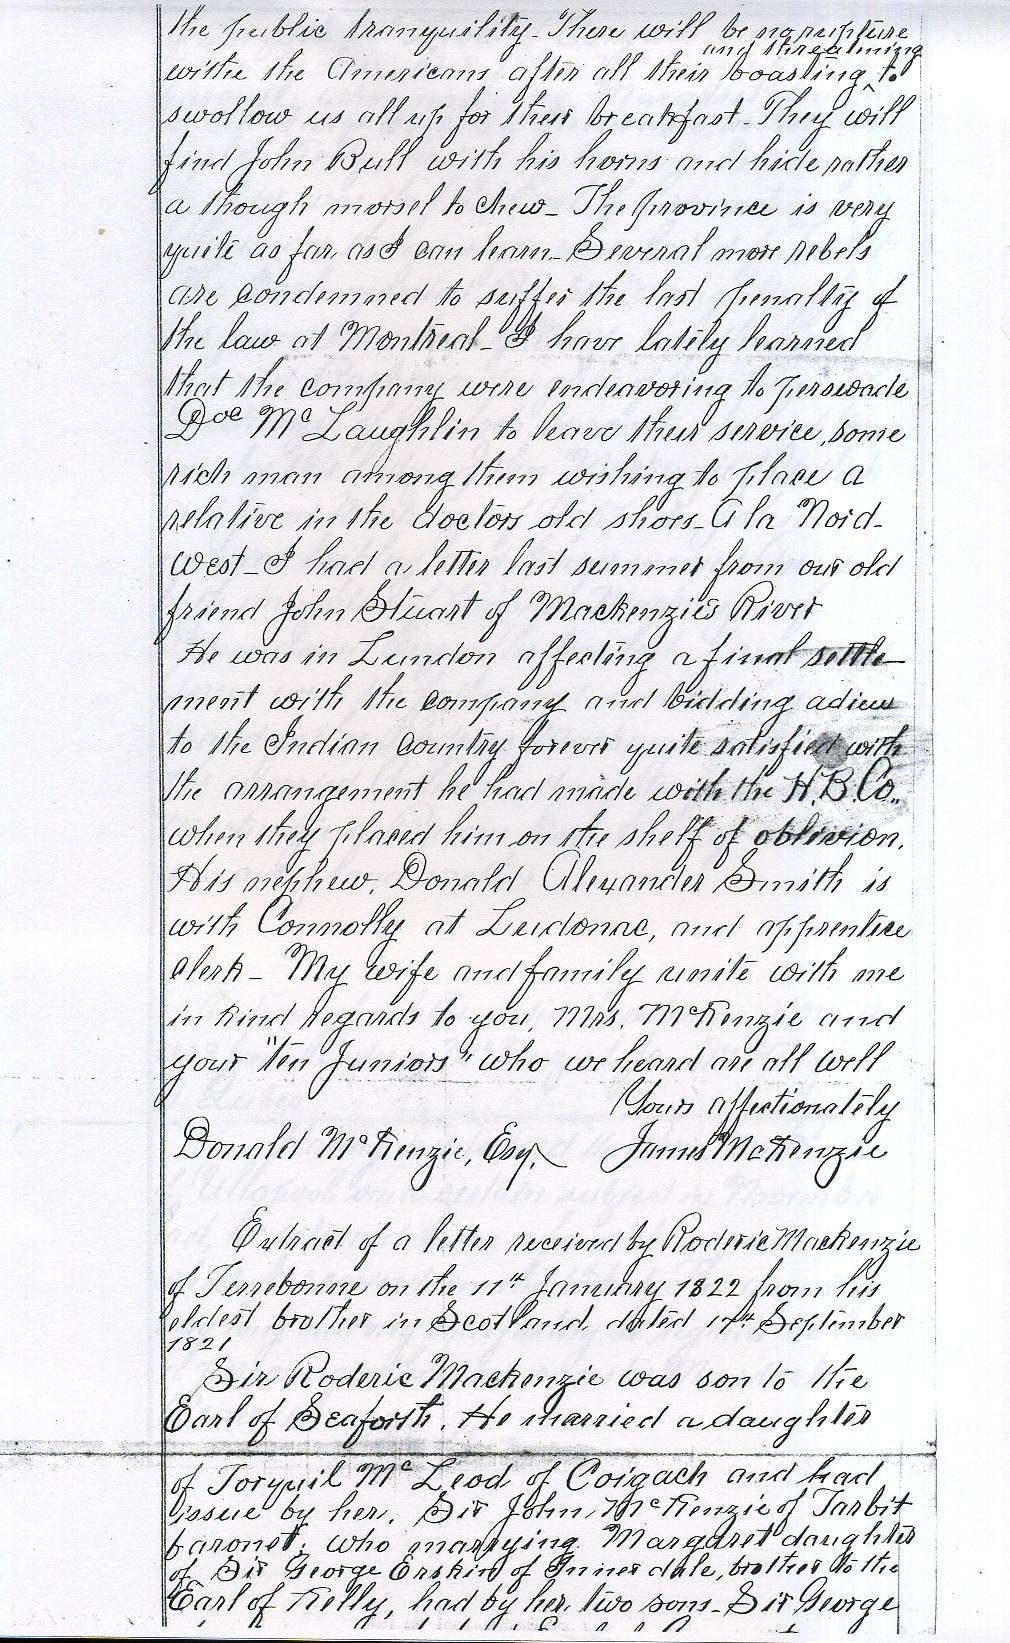 the public tranquility. There will be no rupture
and threatning
withe the Americans after all their boasting ^ to
swollow us all up for their breakfast. They will
find John Bull with his horns and hide rather
a though morsel to chew_ The province is very
quite as far as I can learn_ Several more rebels
are condemned to suffer the last penalty of
the law at Montreal_ I have lately learned
that the company were endeavoring to perswade
Doc McLaughlin to leave their service, some
rich man among them wishing to place a
relative in the doctors old shoes_ A la Nord-
West_ I had a letter last summer from our old
friend John Stuart of Mackenzie's River
He was in Lundon affecting a final settle-
ment with the company and bidding adieu
to the Indian Country forever quite satisfied with
the arrangement he had made with the H.B.Co.,
when they placed him on the shelf of oblivion.
His nephew, Donald Alexander Smith is
with Connolly at Ludonac, and apprentice
clerk_ My wife and family unite with me
in kind regards to you, Mrs. McKenzie and
your "ten Juniors" who we heard are all well
Yours affectionately
Donald McKenzie, Esq. James McKenzie
Extract of a letter received by Roderic Mackenzie
of Terrebonne on the 11th January 1822 from his
eldest brother in Scotland, dated 17th September
1821
Sir Roderic Mackenzie was son to the
Earl of Seaforth. He married a daughter
of Torquil McLeod of Coigach and had
issue by her, Sir John McKenzie of Tarbit
baronet, who marrying Margaret daughter
of Sir George Erskin of Innerdale, brother to the
Earl of Kelly, had by her, two sons_ Sir George